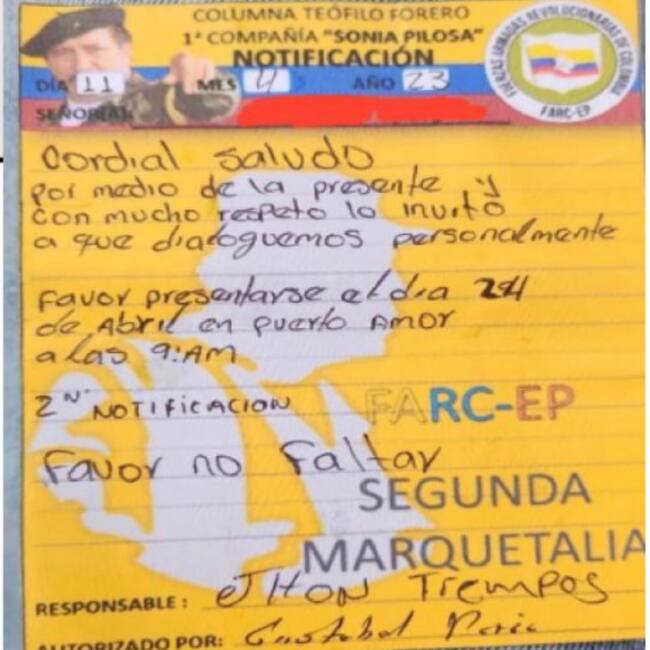 COLUMNA TEÓFILO FORERO
1ª COMPAÑÍA "SONIA PILOSA"
NOTIFICACIÓN
DÍA 11 MES 4 AÑO 23
SEÑOR(A):
FUERZAS ARMADAS REVOLUCIONARIAS DE COLOMBIA
FARC-EP
Cordial saludo
por medio de la presente y
con mucho respeto lo invito
a que dialoguemos personalmente
Favor presentarse el dia 24
de Abril en puerto Amor
a las 9:AM
2ⁿ NOTIFICACION
FARC-EP
Favor no Faltar
SEGUNDA
MARQUETALIA
RESPONSABLE: JHON
AUTORIZADO POR: